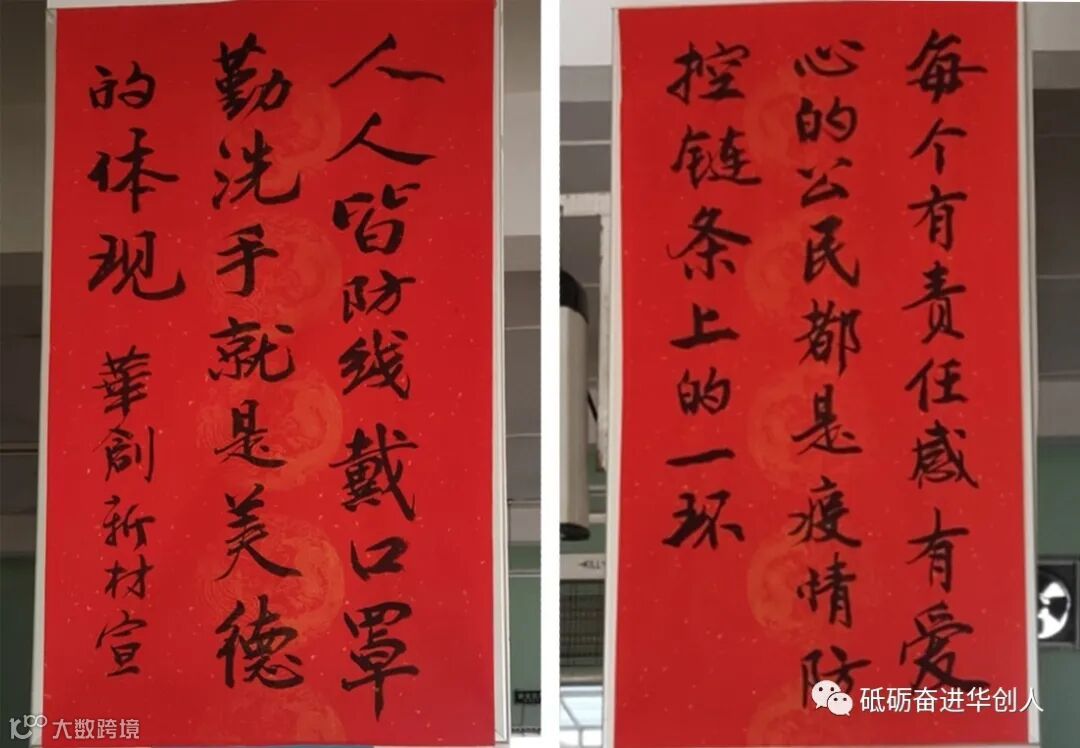 人人皆防线戴口罩
勤洗手就是美德
的体现
華创新材宣
每个有责任感有爱
心的公民都是疫情防
控链条上的一环
大数跨境
砥砺奋进华创人